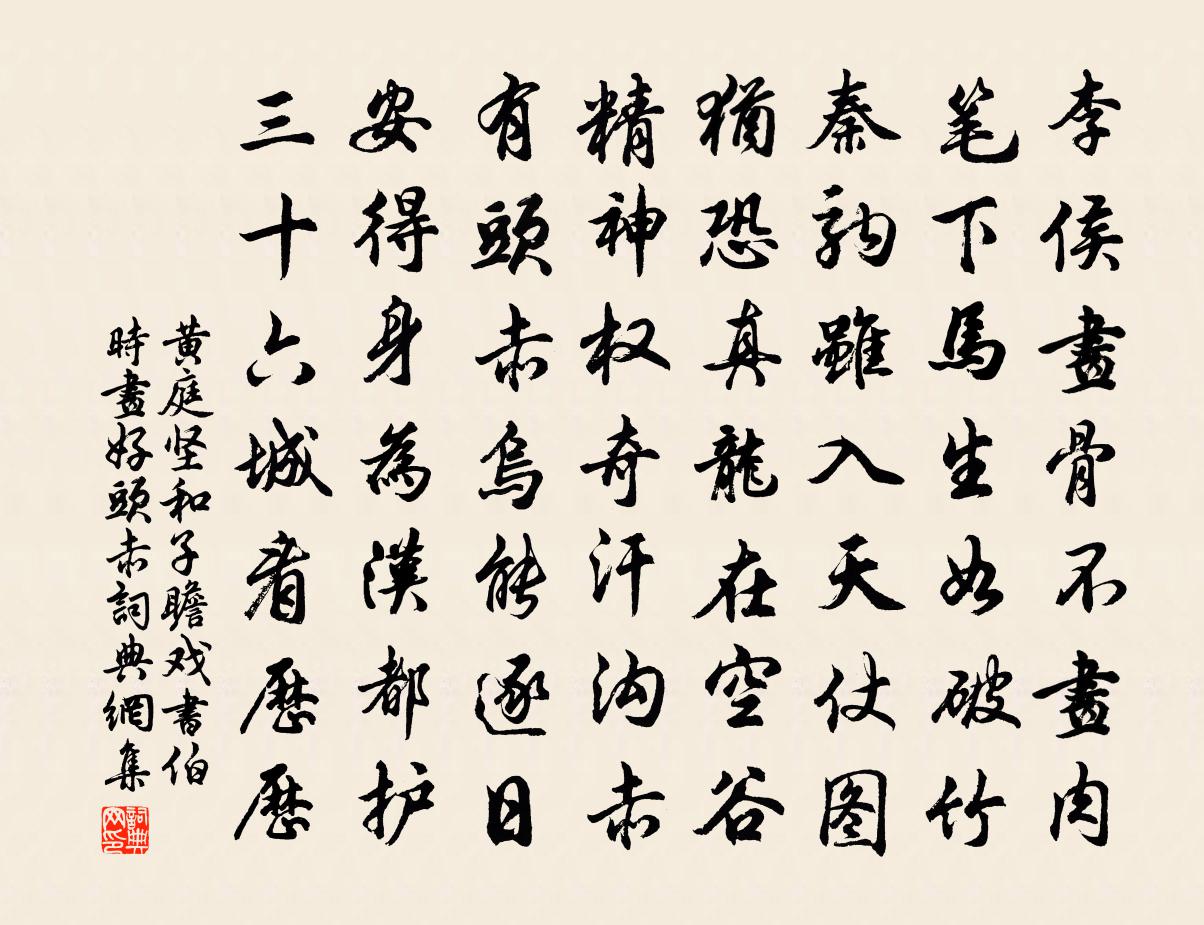 李侯畫骨不畫肉
笔下馬生如破竹
秦駒雖入天仗图
猶恐真龍在空谷
精神权奇汗沟赤
有頭赤烏能逐日
安得身為漢都护
三十六城看歷歷
黄庭坚和子瞻戏書伯
時畫好頭赤詞典網集
詞典
网印